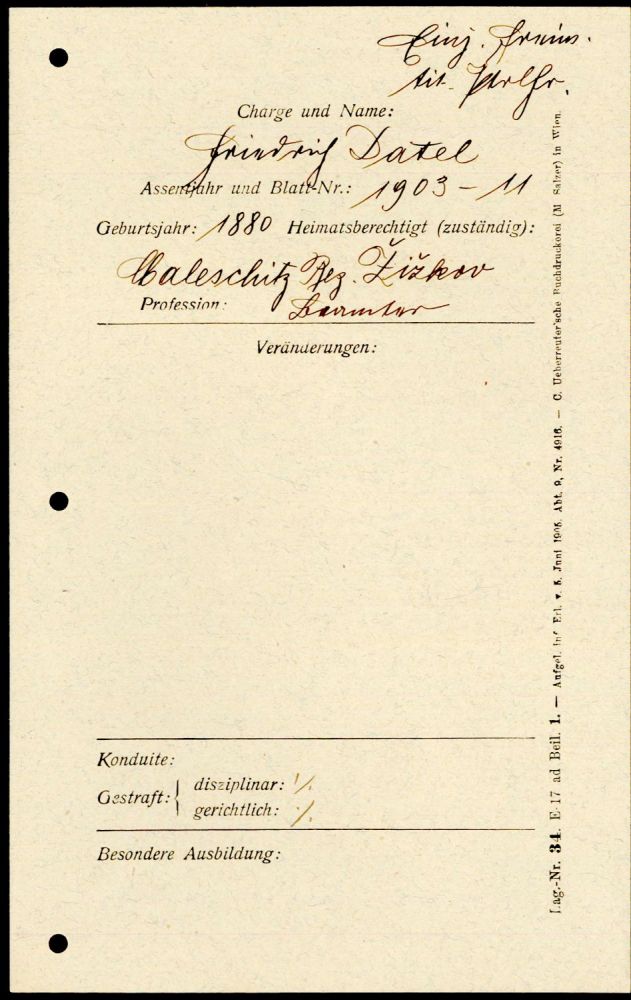 Einj. Freiw.
tit.
Charge und Name:
Friedrich Datel
Assentjahr und Blatt-Nr.: 1903 - 11
Geburtsjahr: 1880 Heimatsberechtigt (zuständig):
Maleschitz Bez. Žižkov
Profession: Beamter
Veränderungen:
Konduite:
Gestraft: { disziplinar: ·/.
gerichtlich: ·/.
Besondere Ausbildung:
Lag.-Nr. 34. E-17 ad Beil. 1. — Aufgel. inf. Erl. v. 5. Juni 1906. Abt. 9, Nr. 4916. — C. Ueberreuter'sche Buchdruckerei (M. Salzer) in Wien.